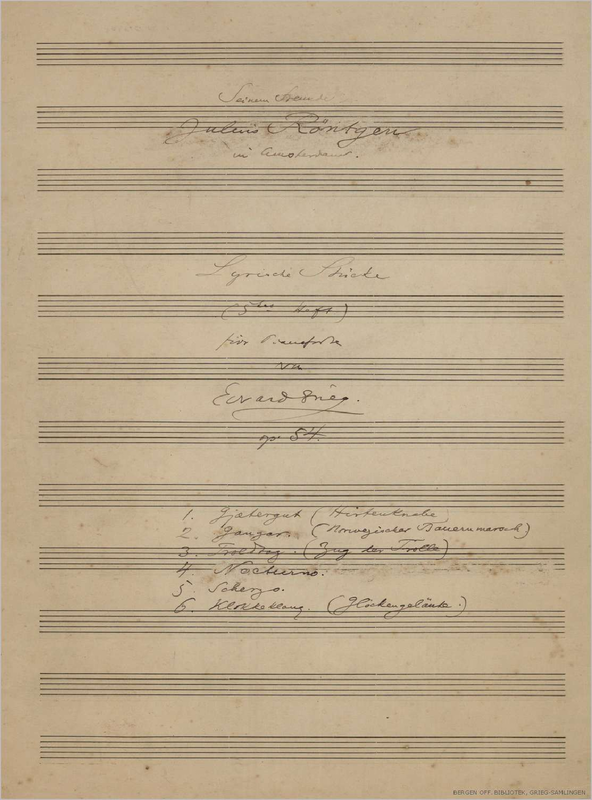 Seinem Freunde
Julius Röntgen
in Amsterdam.
Lyrische Stücke
(5tes Heft)
für Pianoforte
von
Edvard Grieg.
op. 54.
1. Gjætergut (Hirtenknabe)
2. Gangar. (Norwegischer Bauernmarsch.)
3. Troldtog. (Zug der Trolle)
4 Notturno.
5 Scherzo.
6. Klokkeklang. (Glockengeläute.)
BERGEN OFF. BIBLIOTEK, GRIEG-SAMLINGEN